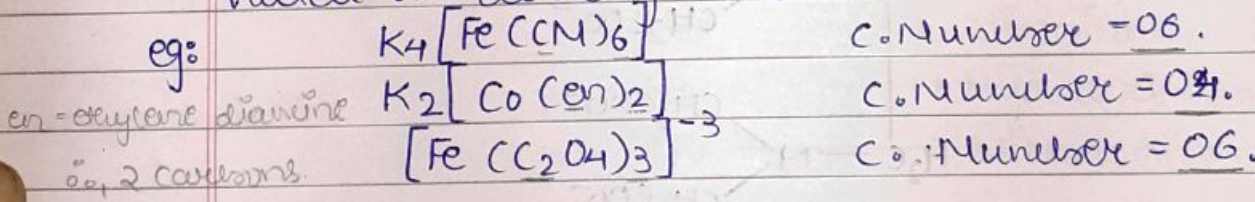 eg: K4[Fe(CN)6] C.Number = 06.
en = ethylene diamine K2[Co(en)2] C.Number = 04.
∴, 2 carbons. [Fe(C2O4)3]-3 C. Number = 06.